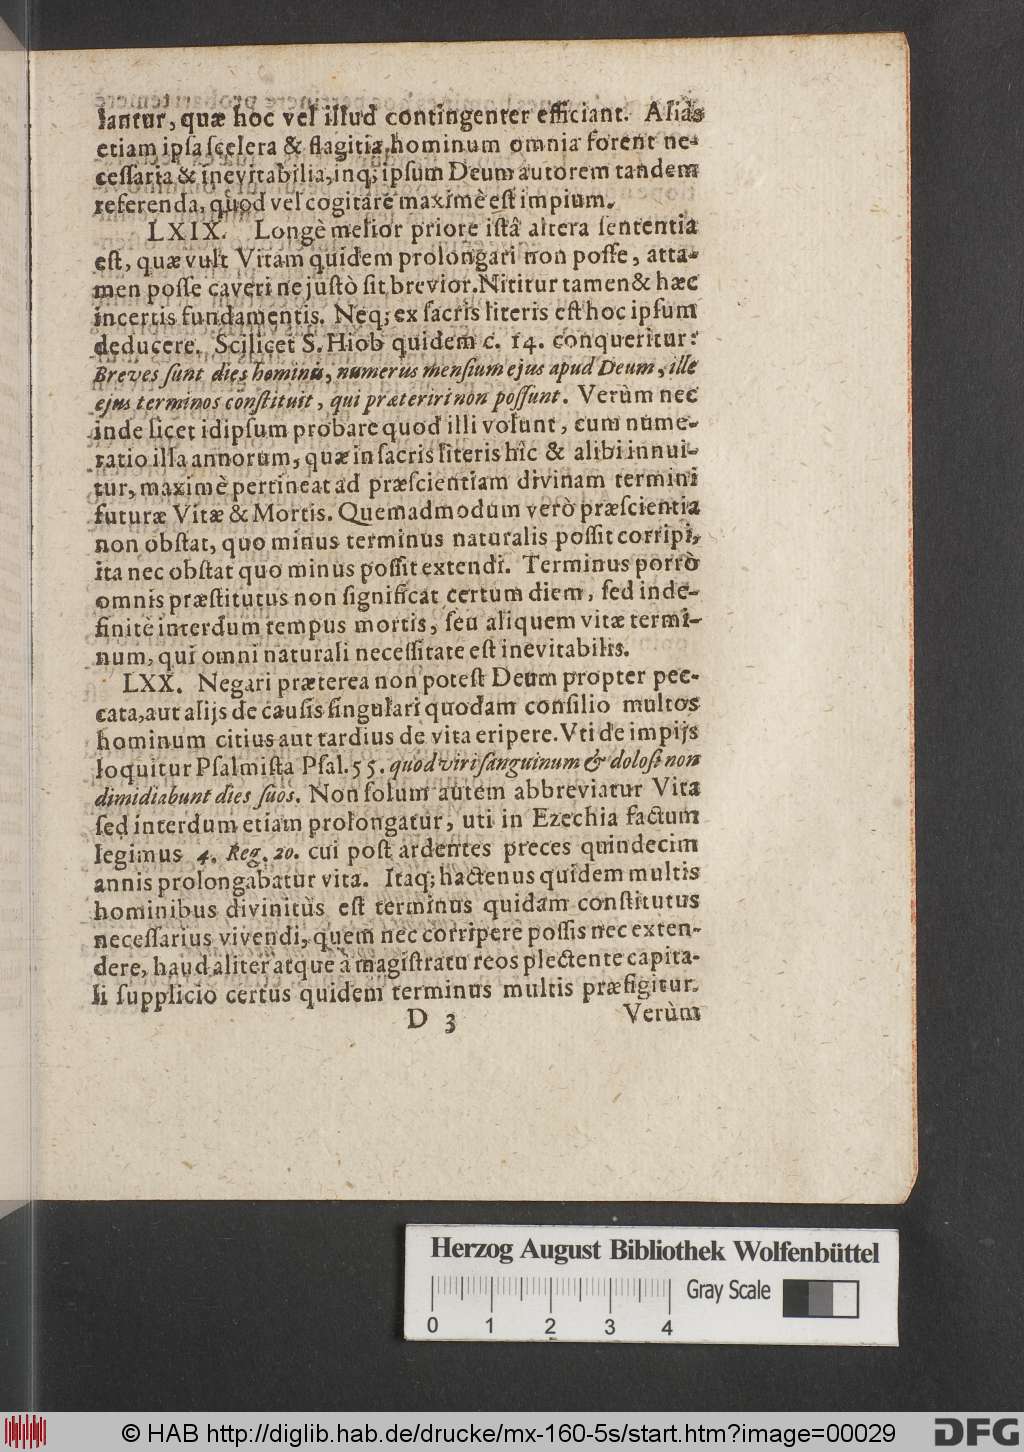 lantur, quæ hoc vel illud contingenter efficiant. Aliàs
etiam ipsa scelera & flagitia hominum omnia forent ne-
cessaria & inevitabilia, inq; ipsum Deum autorem tandem
referenda, quod vel cogitare maximè est impium.
LXIX. Longè melior priore istâ altera sententia
est, quæ vult Vitam quidem prolongari non posse, atta-
men posse caveri ne justò sit brevior. Nititur tamen & hæc
incertis fundamentis. Neq; ex sacris literis est hoc ipsum
deducere. Scilicet S. Hiob quidem c. 14. conqueritur:
Breves sunt dies hominis, numerus mensium ejus apud Deum, ille
ejus terminos constituit, qui præteriri non possunt. Verùm nec
inde licet id ipsum probare quod illi volunt, cum nume-
ratio illa annorum, quæ in sacris literis hîc & alibi innui-
tur, maximè pertineat ad præscientiam divinam termini
futuræ Vitæ & Mortis. Quemadmodum verò præscientia
non obstat, quo minus terminus naturalis possit corripi,
ita nec obstat quo minus possit extendi. Terminus porrò
omnis præstitutus non significat certum diem, sed inde-
finitè interdum tempus mortis, seu aliquem vitæ termi-
num, qui omni naturali necessitate est inevitabilis.
LXX. Negari præterea non potest Deum propter pec-
cata, aut alijs de causis singulari quodam consilio multos
hominum citius aut tardius de vita eripere. Vti de impijs
loquitur Psalmista Psal. 55. quod viri sanguinum & dolosi non
dimidiabunt dies suos. Non solum autem abbreviatur Vita
sed interdum etiam prolongatur, uti in Ezechia factum
legimus 4. Reg. 20. cui post ardentes preces quindecim
annis prolongabatur vita. Itaq; hactenus quidem multis
hominibus divinitùs est terminus quidam constitutus
necessarius vivendi, quem nec corripere possis nec exten-
dere, haud aliter atque à magistratu reos plectente capita-
li supplicio certus quidem terminus multis præfigitur.
D 3 Verùm
Herzog August Bibliothek Wolfenbüttel
Gray Scale
0 1 2 3 4
© HAB http://diglib.hab.de/drucke/mx-160-5s/start.htm?image=00029
DFG